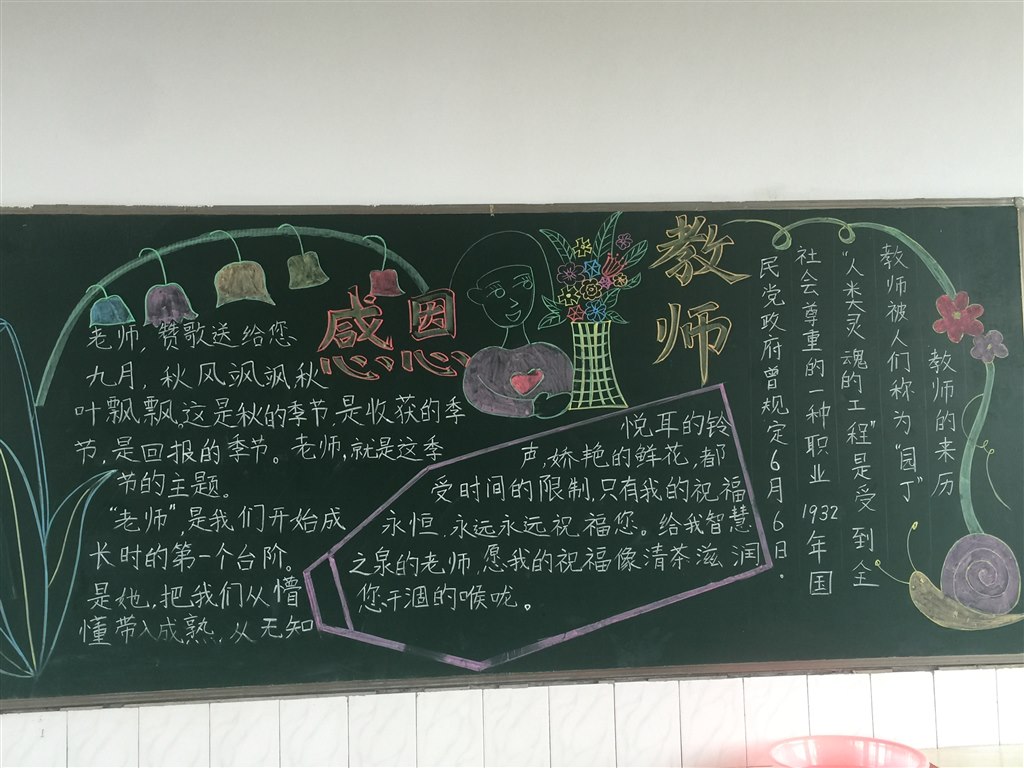 感恩
教师
老师,赞歌送给您
九月,秋风飒飒秋
叶飘飘,这是秋的季节,是收获的季
节,是回报的季节。老师,就是这季
节的主题。
“老师”,是我们开始成
长时的第一个台阶。
是她,把我们从懵
懂带入成熟,从无知
悦耳的铃
声,娇艳的鲜花,都
受时间的限制,只有我的祝福
永恒,永远永远祝福您。给我智慧
之泉的老师,愿我的祝福像清茶滋润
您干涸的喉咙。
教师的来历
教师被人们称为“园丁”
“人类灵魂的工程”是受到全
社会尊重的一种职业 1932年国
民党政府曾规定6月6日.